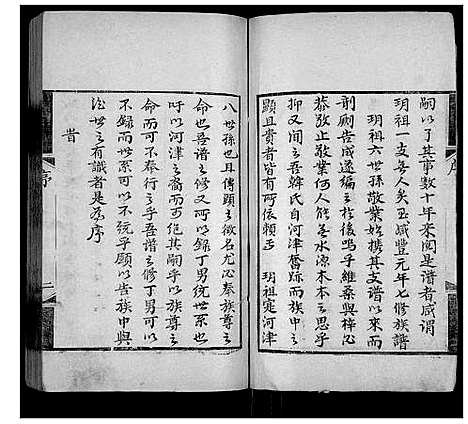 嗣以了其事數十年來閱是譜者咸謂
玥祖一支無人矣至咸豐元年七修族譜
玥祖六世孫敬業始攜其支譜以來而
剞劂告成遂編之於後嗚乎維桑與梓必
恭敬止敬業何人能無水源木本之思乎
抑又聞之吾韓氏自河津奮跡而後
顯且貴者皆有所依賴玥祖寔河津
八世孫也且傳頤之徵名尤必奉族尊之
命也吾譜之修又所以錄丁男統世系也
吁以河津之裔而可絕其嗣乎以族尊之
命而可不奉行之乎吾譜之修丁男可
不錄而世系可以不統乎願以告族中與
治世之有識者是為序
昔
序